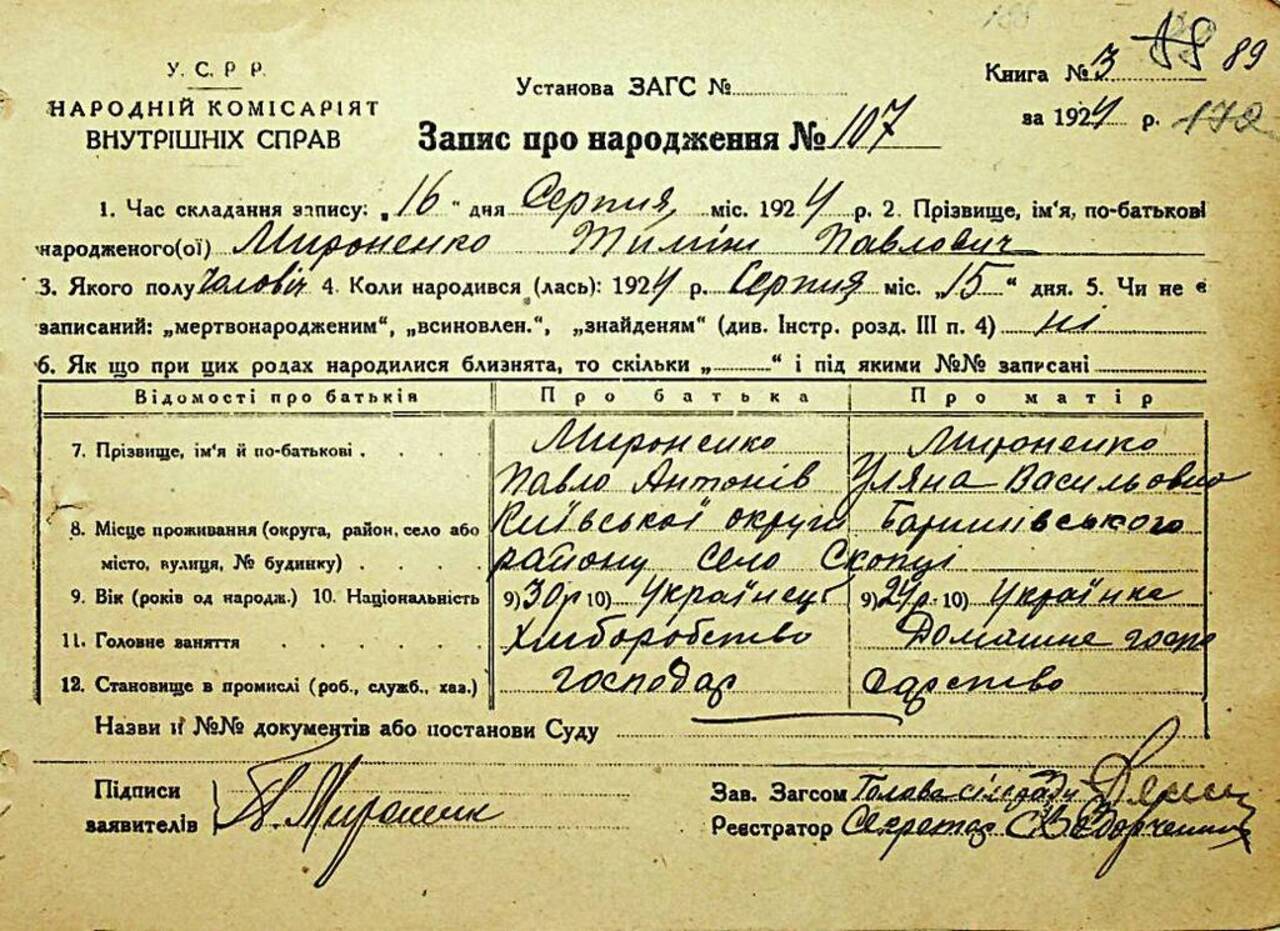 У. С. Р. Р.
НАРОДНІЙ КОМІСАРІЯТ
ВНУТРІШНІХ СПРАВ
Установа ЗАГС №
Запис про народження № 107
Книга № 3 89
за 1924 р. 172
1. Час складання запису: „16“ дня Серпня міс. 1924 р. 2. Прізвище, ім'я, по-батькові
народженого(ої) Мироненко Павлович
3. Якого полу Чоловіч 4. Коли народився (лась): 1924 р. Серпня міс. „15“ дня. 5. Чи не є
записаний: „мертвонародженим“, „всиновлен.“, „знайденям“ (див. Інстр. розд. III п. 4) ні
6. Як що при цих родах народилися близнята, то скільки „ “ і під якими №№ записані
Відомості про батьків Про батька Про матір
7. Прізвище, ім'я й по-батькові . . . . Мироненко Мироненко
Павло Антонів Уляна Васильовна
8. Місце проживання (округа, район, село або Київської округи Баришівського
місто, вулиця, № будинку) . . . . району село Скопці
9. Вік (років од народж.) 10. Національність 9) 30 р 10) Українець 9) 24 р. 10) Українка
11. Головне заняття . . . . . . Хліборобство Домашне госпо
12. Становище в промислі (роб., служб., хаз.) господар дарство
Назви й №№ документів або постанови Суду
Підписи
заявителів П.
Зав. Загсом Голова сільради
Реєстратор Секретар